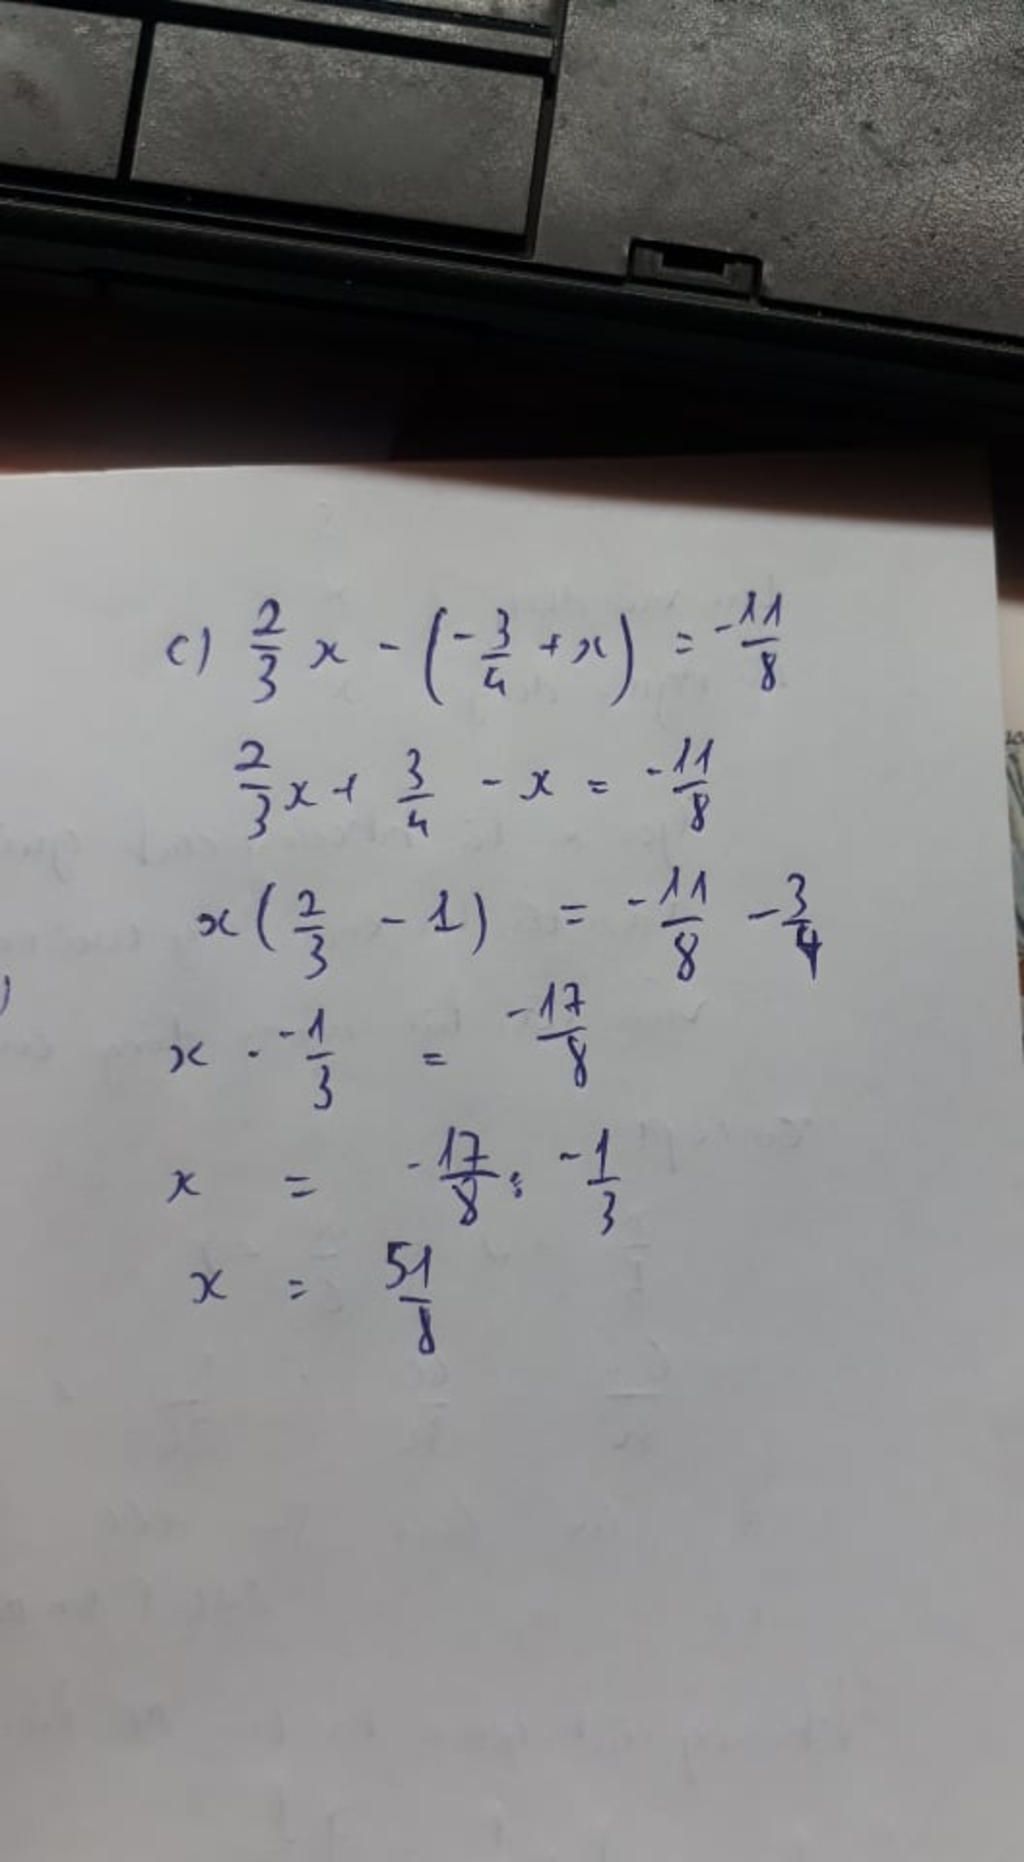 c) 2/3 x - (-3/4 + x) = -11/8
2/3 x + 3/4 - x = -11/8
x (2/3 - 1) = -11/8 - 3/4
x . -1/3 = -17/8
x = -17/8 : -1/3
x = 51/8